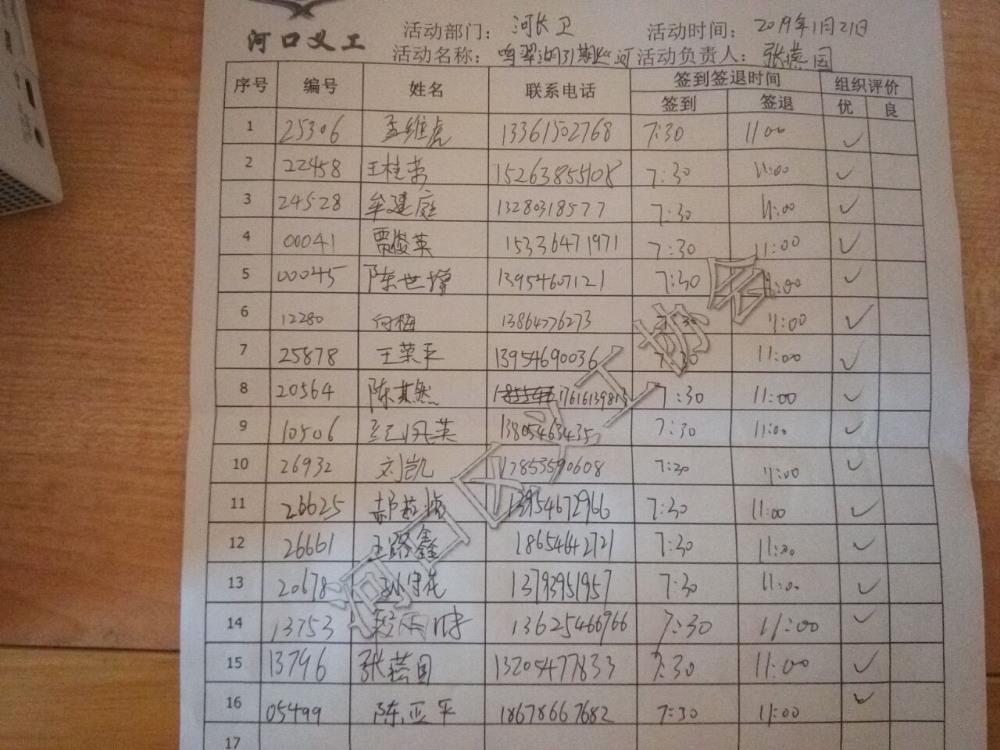 河口义工
活动部门: 河长卫 活动时间: 2019年1月21日
活动名称: 鸣翠湖31期巡河 活动负责人: 张慈国
序号 编号 姓名 联系电话 签到签退时间 组织评价
签到 签退 优 良
1 25306 孟维虎 13361502768 7:30 11:00 ✓
2 22458 王桂荣 15263855108 7:30 11:00 ✓
3 24528 牟建庭 13280318577 7:30 11:00 ✓
4 00041 贾俊英 15336471971 7:30 11:00 ✓
5 00045 陈世增 13954607121 7:30 11:00 ✓
6 12280 向梅 13864776273 7:30 11:00 ✓
7 25878 王荣平 13954690036 7:30 11:00 ✓
8 20564 陈其然 17616139813 7:30 11:00 ✓
9 10506 13805463435 7:30 11:00 ✓
10 26932 刘凯 17853590608 7:30 11:00 ✓
11 26625 13954672966 7:30 11:00 ✓
12 26661 王路鑫 18654642721 7:30 11:00 ✓
13 20678 13793951957 7:30 11:00 ✓
14 13753 13625466966 7:30 11:00 ✓
15 13796 张慈国 13205477833 7:30 11:00 ✓
16 05499 陈亚平 18678667682 7:30 11:00 ✓
17
河口区义工协会